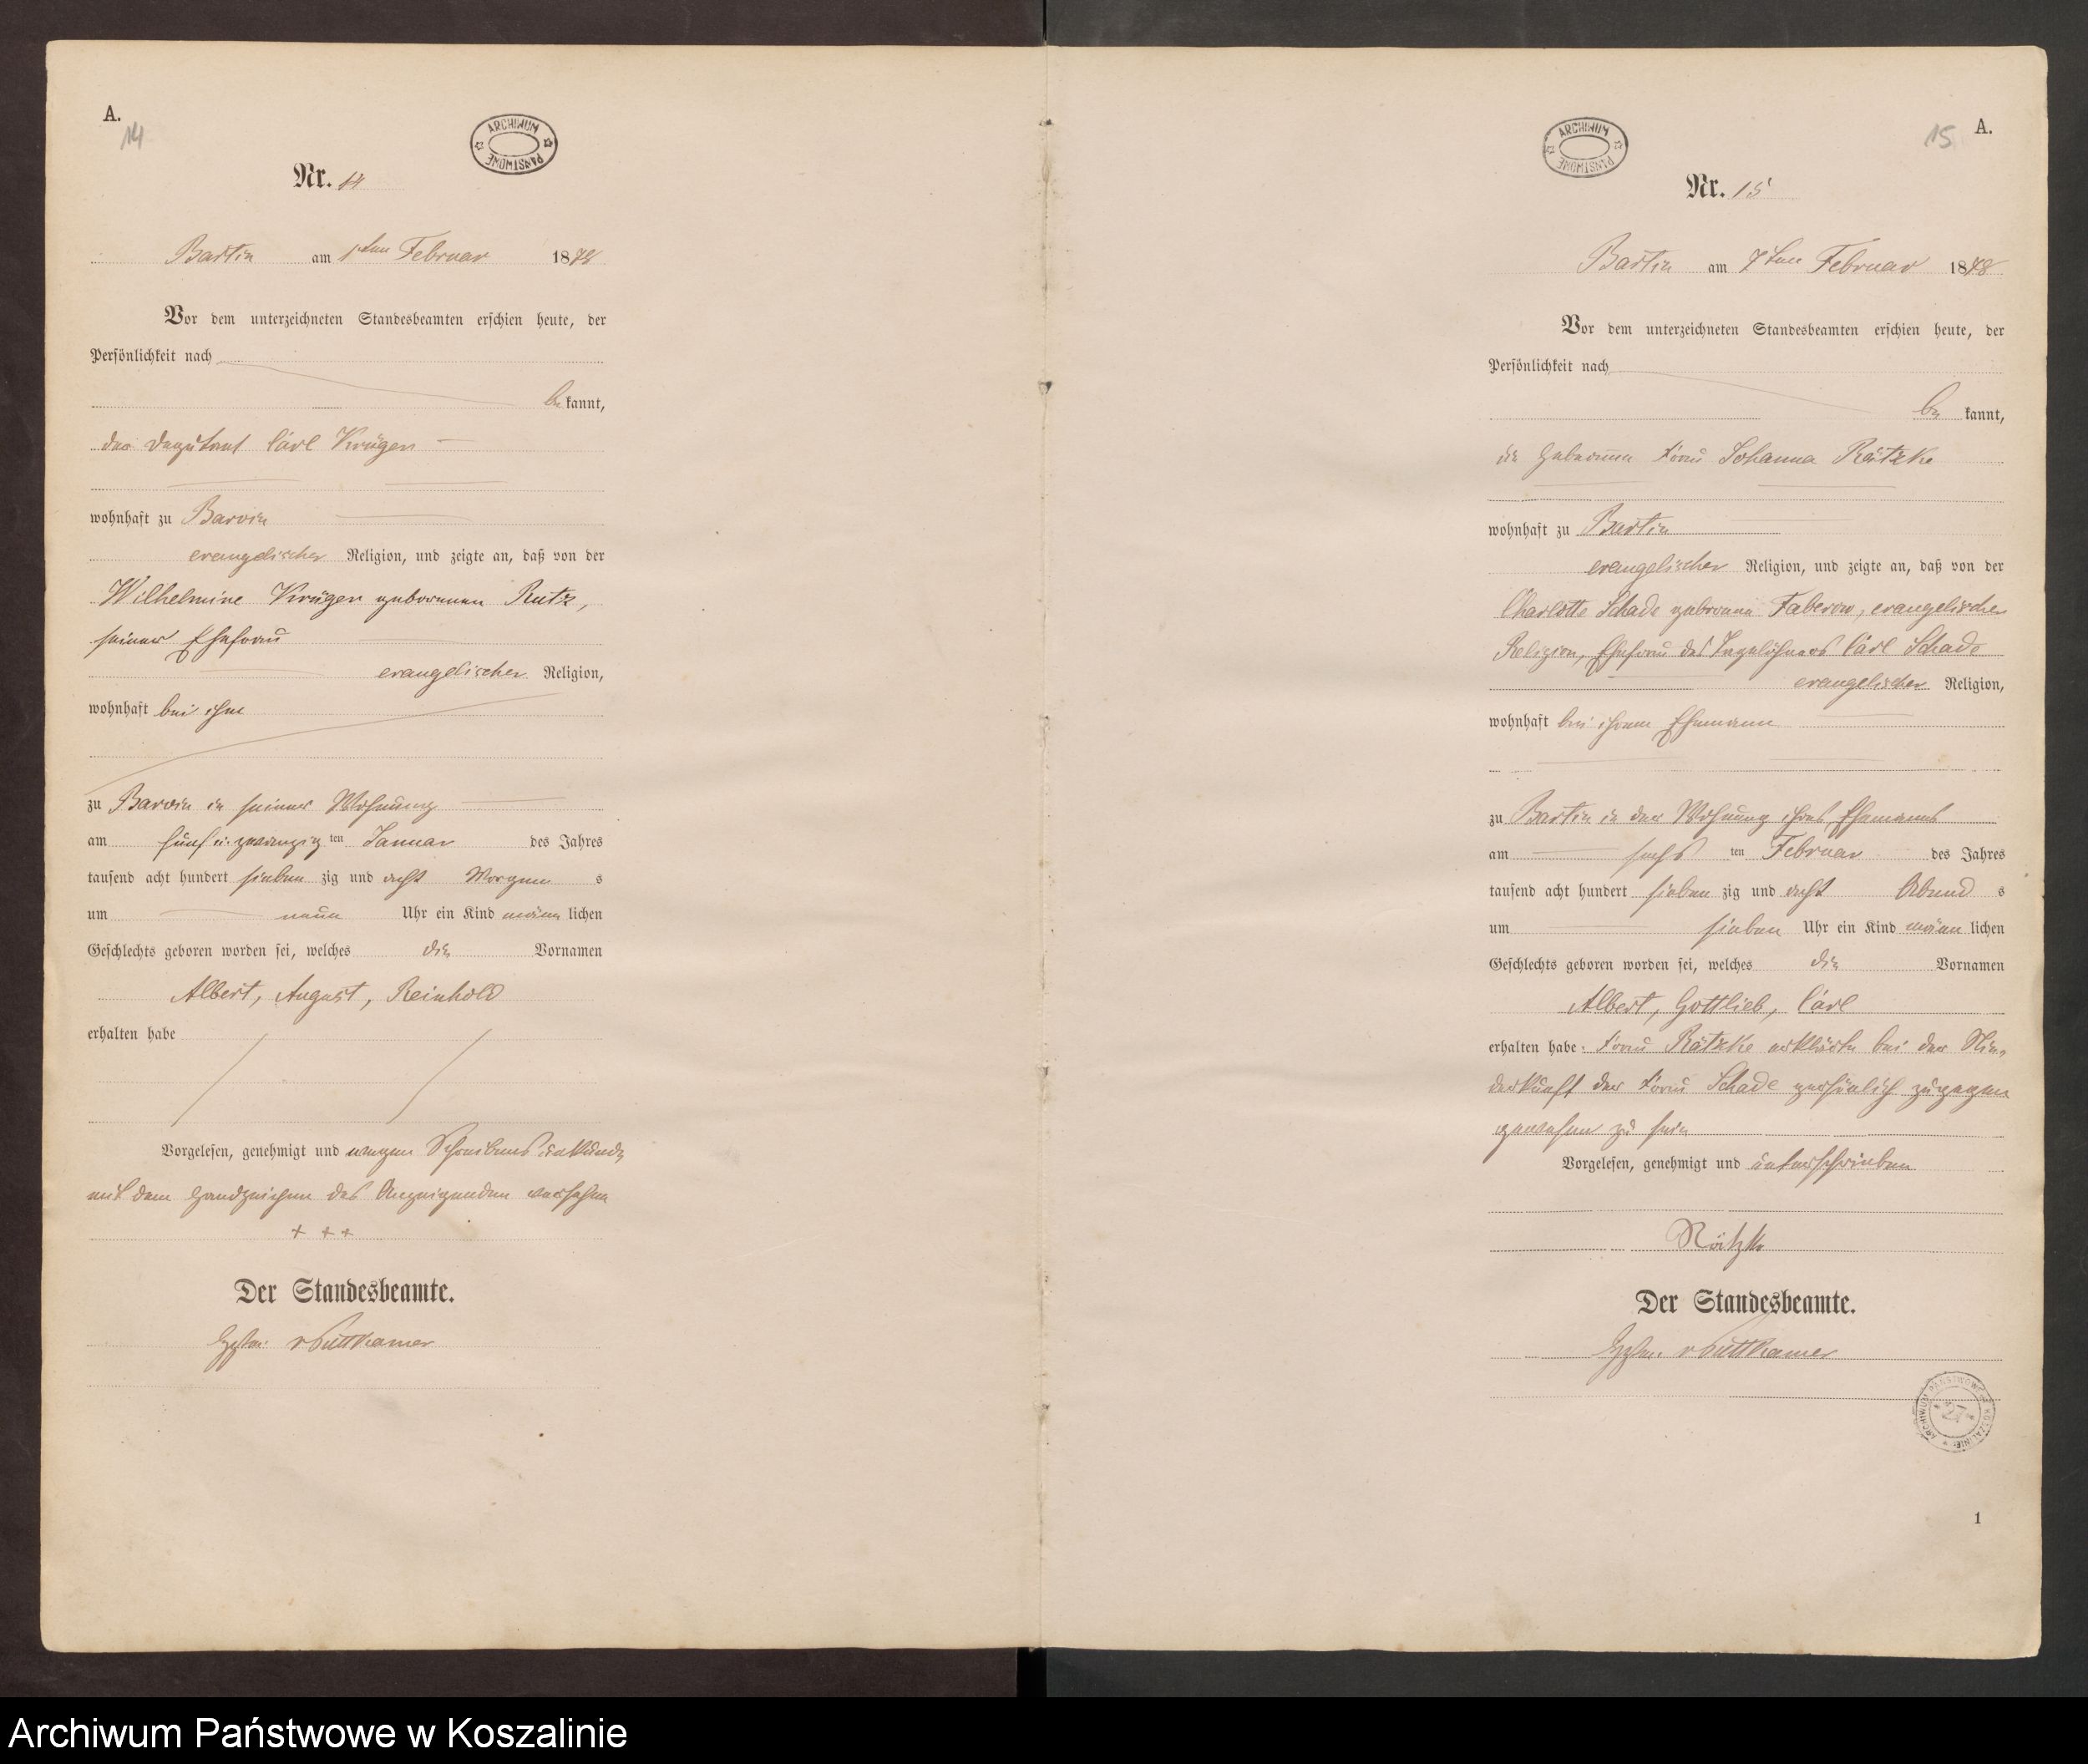 A.
14
ARCHIWUM PAŃSTWOWE
Nr. 14
Bartin am 1ten Februar 1878
Vor dem unterzeichneten Standesbeamten erschien heute, der
Persönlichkeit nach
be kannt,
der Deputant Carl Krüger
wohnhaft zu Barvin
evangelischer Religion, und zeigte an, daß von der
Wilhelmine Krüger geborenen Rutz,
seiner Ehefrau
evangelischer Religion,
wohnhaft bei ihm
zu Barvin in seiner Wohnung
am fünf u. zwanzig ten Januar des Jahres
tausend acht hundert sieben zig und acht Morgen s
um neun Uhr ein Kind männ lichen
Geschlechts geboren worden sei, welches die Vornamen
Albert, August, Reinhold
erhalten habe
Vorgelesen, genehmigt und wegen Schreibensunkunde
mit dem Handzeichen des Anzeigenden versehen
+ + +
Der Standesbeamte.
v Puttkamer
A.
15
ARCHIWUM PAŃSTWOWE
Nr. 15
Bartin am 7ten Februar 1878
Vor dem unterzeichneten Standesbeamten erschien heute, der
Persönlichkeit nach
be kannt,
die Hebamme Frau Johanna Rätzke
wohnhaft zu Bartin
evangelischer Religion, und zeigte an, daß von der
Charlotte Schade geborene Faberow, evangelischer
Religion, Ehefrau des Tagelöhners Carl Schade
evangelischer Religion,
wohnhaft bei ihrem Ehemann
zu Bartin in der Wohnung ihres Ehemanns
am sechs ten Februar des Jahres
tausend acht hundert sieben zig und acht Abend s
um sieben Uhr ein Kind männ lichen
Geschlechts geboren worden sei, welches die Vornamen
Albert, Gottlieb, Carl
erhalten habe. Frau Rätzke erklärte bei der Nie-
derkunft der Frau Schade persönlich zugegen
gewesen zu sein
Vorgelesen, genehmigt und unterschrieben
Rätzke
Der Standesbeamte.
v Puttkamer
ARCHIWUM PAŃSTWOWE KOSZALINIE
27
1
Archiwum Państwowe w Koszalinie